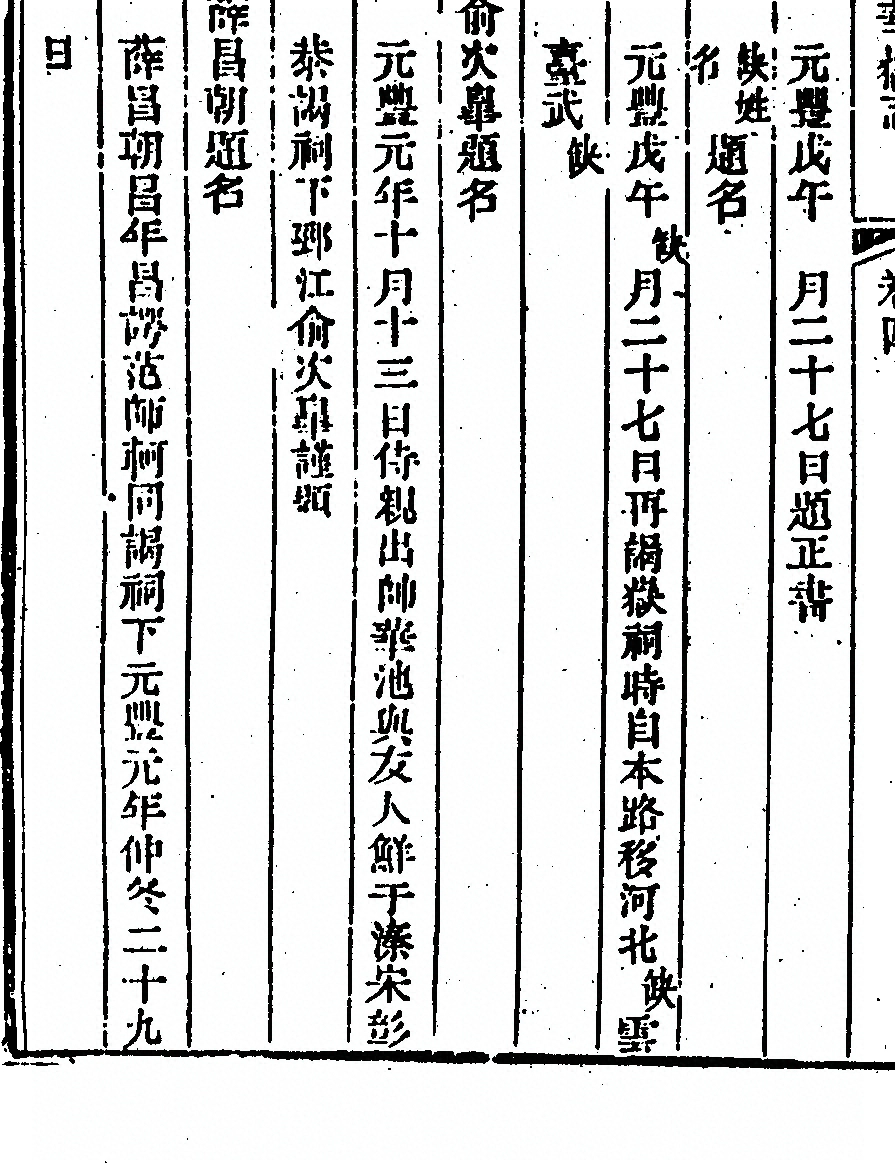 華嶽志 卷四
元豐戊午 月二十七日題正書
缺姓名題名
元豐戊午缺月二十七日再謁嶽祠時自本路移河北缺雲
臺武缺
俞次皐題名
元豐元年十月十三日侍親出帥華池與友人鮮于溱宋彭
恭謁祠下鄞江俞次皐謹題
薛昌朝題名
薛昌朝昌年昌諤范師柯同謁祠下元豐元年仲冬二十九
日